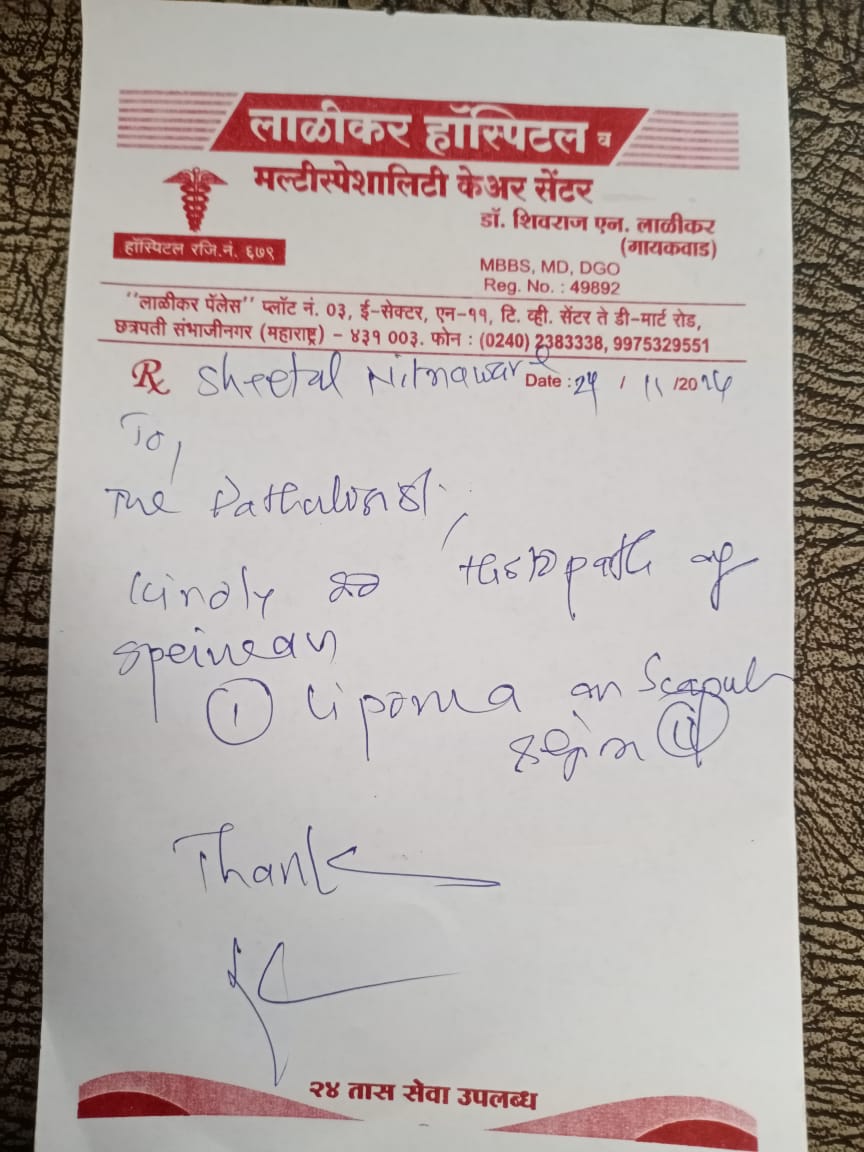 लाळीकर हॉस्पिटल व
मल्टीस्पेशालिटी केअर सेंटर
हॉस्पिटल रजि.नं. ६७९
डॉ. शिवराज एन. लाळीकर
(गायकवाड)
MBBS, MD, DGO
Reg. No. : 49892
"लाळीकर पॅलेस" प्लॉट नं. 03, ई-सेक्टर, एन-११, टि. व्ही. सेंटर ते डी-मार्ट रोड,
छत्रपती संभाजीनगर (महाराष्ट्र) – ४३१ 003. फोन : (0240) 2383338, 9975329551
Rx Sheetal Date : 24 / 11 /2024
To,
The Pathologist,
Kindly do Histopath of
Speimean
① Lipoma on Scapul
region
Thank
२४ तास सेवा उपलब्ध